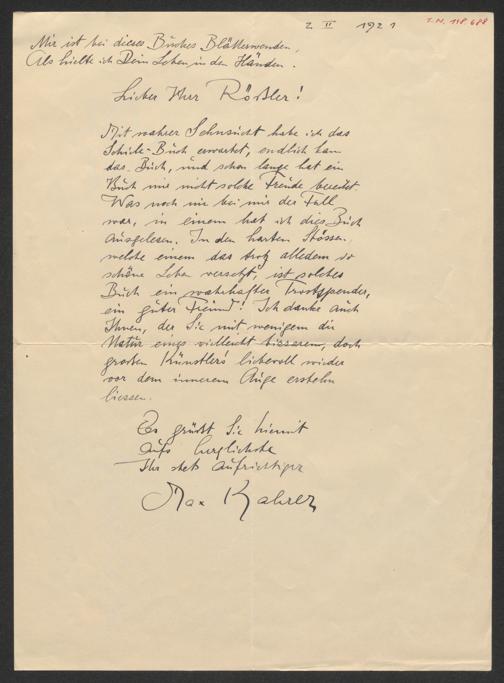 2 II 1921
I.N. 148.688
Mir ist bei dieses Buches Blätterwenden,
Als hielte ich Dein Leben in den Händen.
Lieber Herr Rößler!
Mit wahrer Sehnsucht habe ich das
Schiele-Buch erwartet, endlich kam
das Buch, und schon lange hat ein
Buch mir nicht solche Freude bereitet
Was noch nie bei mir der Fall
war, in einem hat ich dies Buch
ausgelesen. In den harten Stössen,
welche einem das trotz alledem so
schöne Leben versetzt, ist solches
Buch ein wahrhafter Trostspender,
ein guter Freund! Ich danke auch
Ihnen, der Sie mit wenigem die
Natur eines vielleicht bizarren, doch
großen Künstlers liebevoll wieder
vor dem innerem Auge erstehn
liessen.
Es grüßt Sie hiemit
aufs herzlichste
Ihr stets aufrichtiger
Max Kahrer